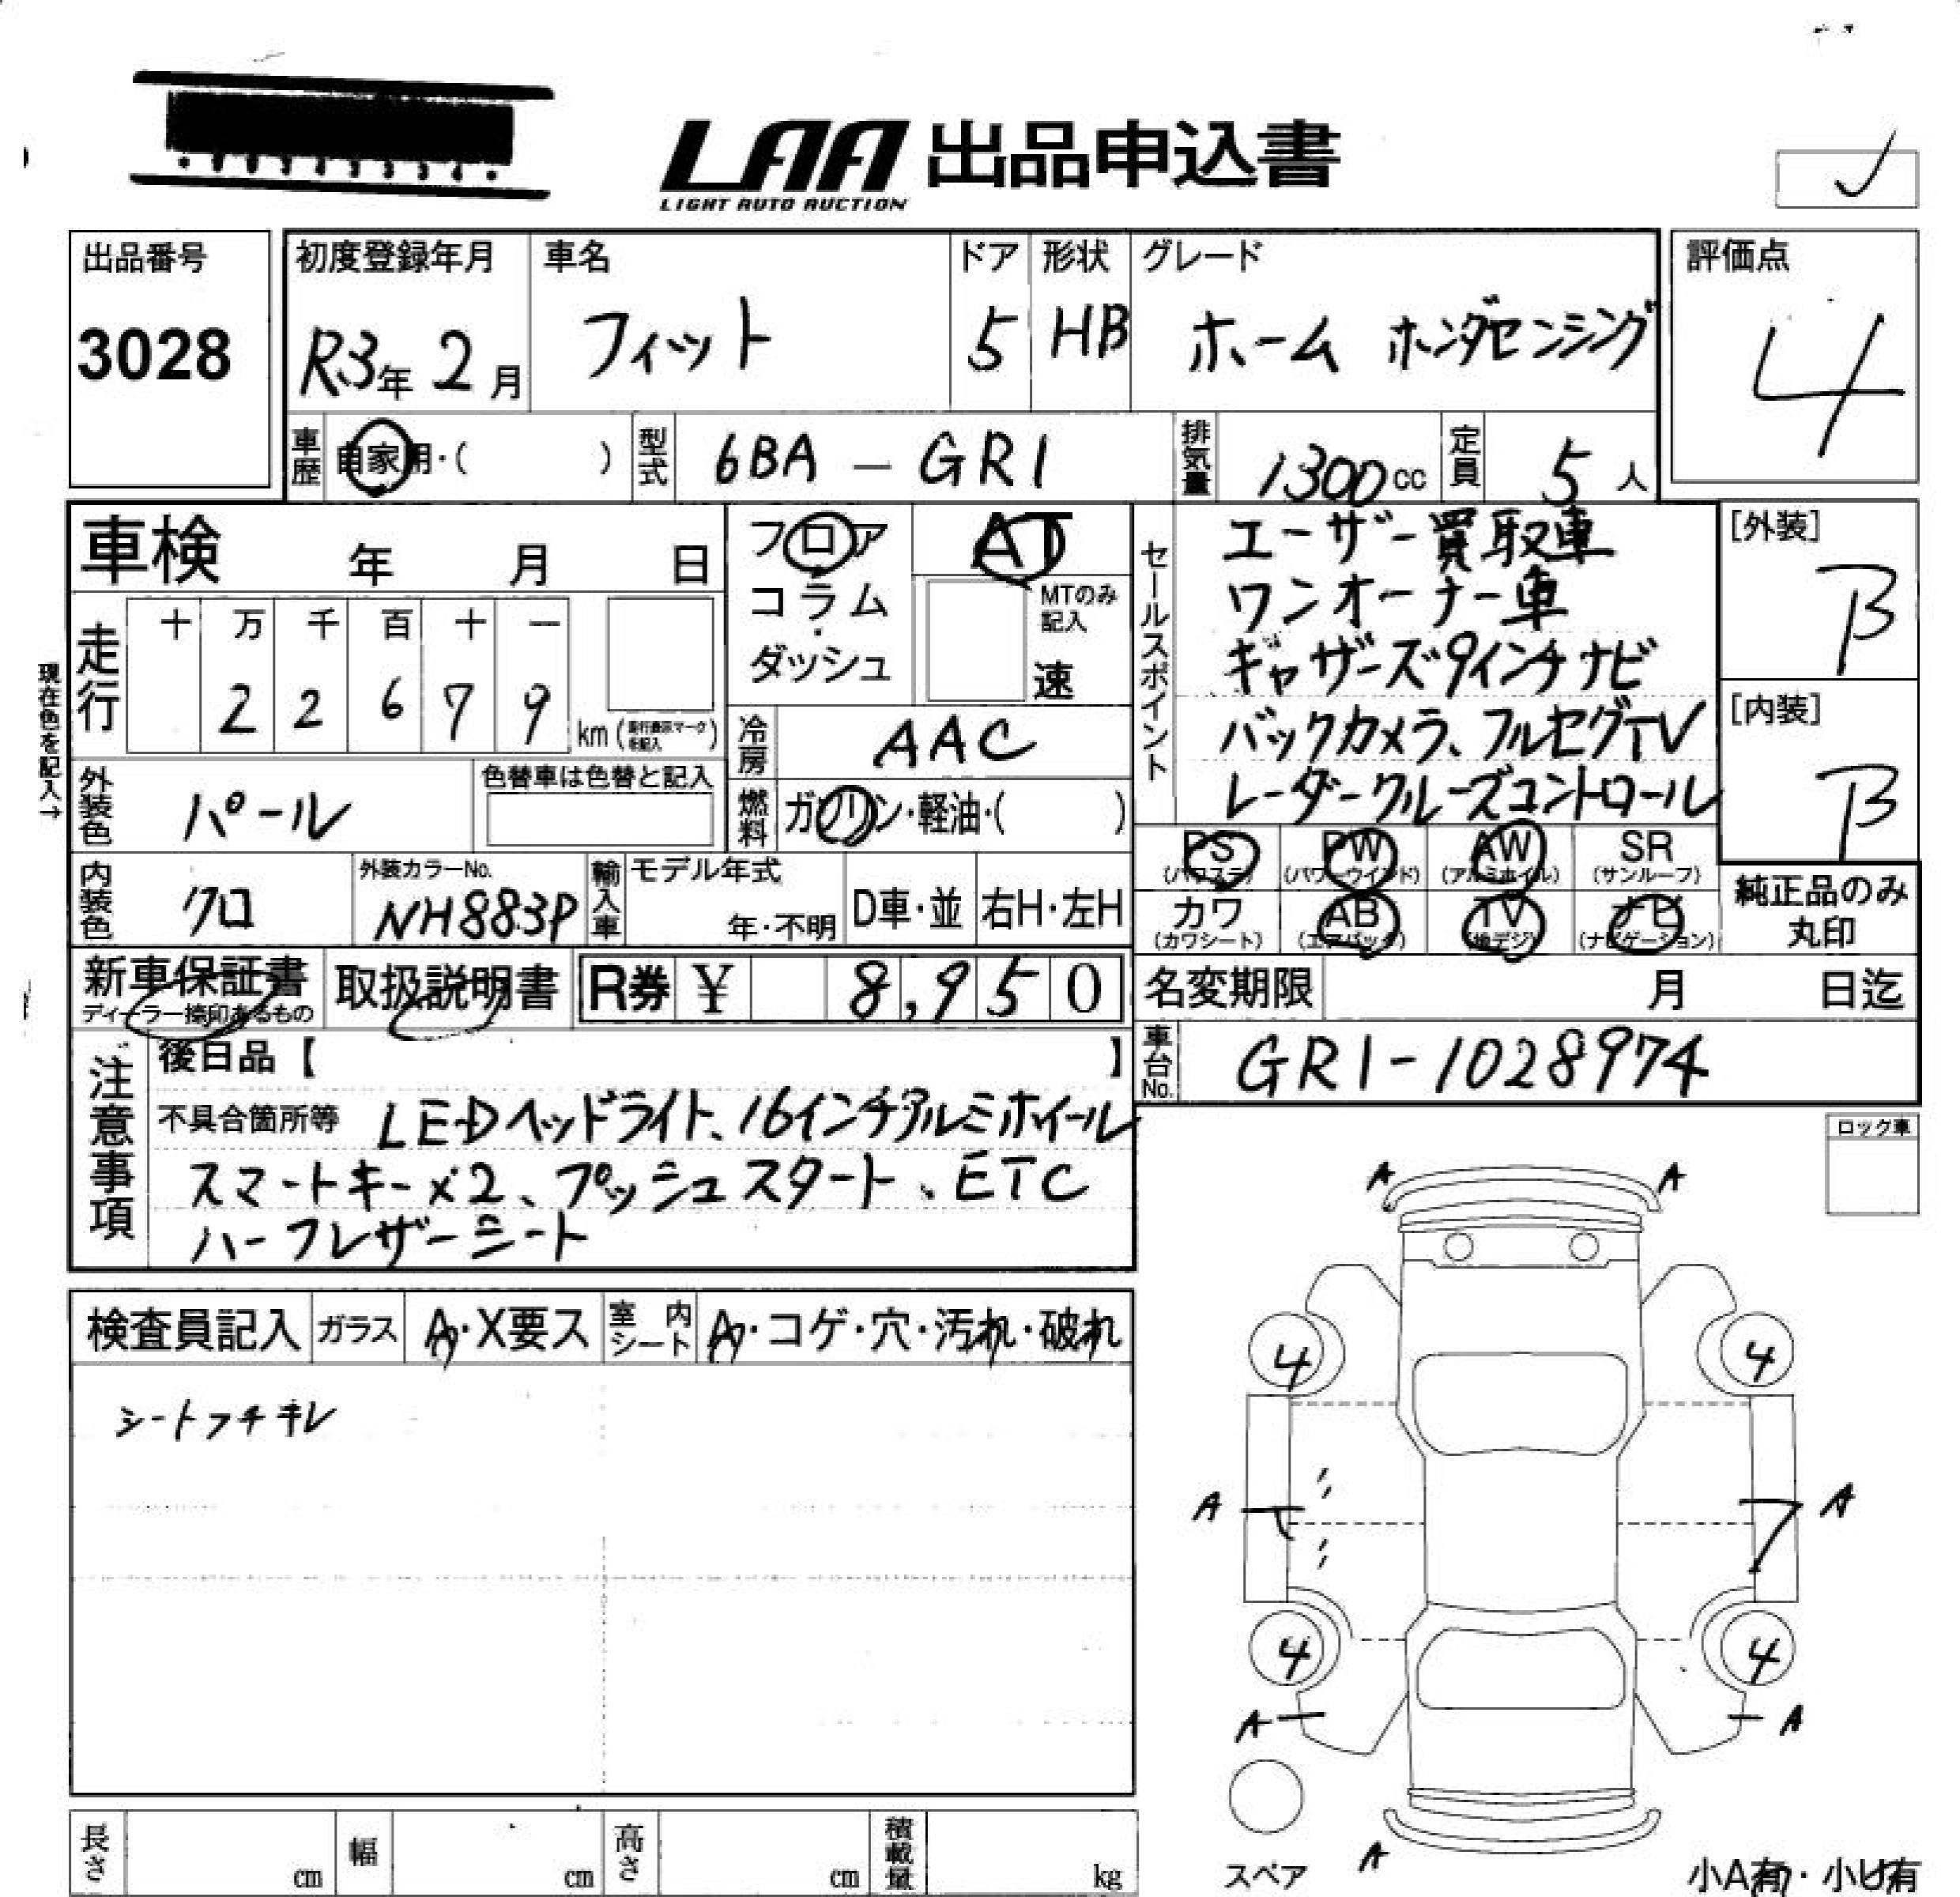 LAA 出品申込書
LIGHT AUTO AUCTION
出品番号 初度登録年月 車名 ドア 形状 グレード 評価点
3028 R3年 2月 フィット 5 HB ホーム ホンダセンシング 4
車歴 自家用・( ) 型式 6BA - GR1 排気量 1300cc 定員 5人
車検 年 月 日 フロア AT
コラム・ダッシュ MTのみ記入 速
現在色を記入→
走行 十 万 千 百 十 一
2 2 6 7 9 km(走行表示マークを記入)
冷房 AAC
外装色 パール 色替車は色替と記入 燃料 ガソリン・軽油・( )
内装色 クロ 外装カラーNo. NH883P 輸入車 モデル年式 年・不明 D車・並 右H・左H
セールスポイント
エーザー買取車
ワンオーナー車
ギャザーズ9インチナビ
バックカメラ、フルセグTV
レーダークルーズコントロール
[外装] B
[内装] B
PS (パワステ) PW (パワーウインド) AW (アルミホイル) SR (サンルーフ)
カワ (カワシート) AB (エアバッグ) TV (地デジ) ナビ (ナビゲーション)
純正品のみ丸印
新車保証書 ディーラー捺印あるもの 取扱説明書 R券 ¥ 8,950
名変期限 月 日迄
車台No. GR1-1028974
注意事項 後日品【 】
不具合箇所等 LEDヘッドライト、16インチアルミホイール
スマートキー×2、プッシュスタート、ETC
ハーフレザーシート
ロック車
検査員記入 ガラス A・X要ス 室内シート A・コゲ・穴・汚れ・破れ
シートフチキレ
A A
4 4
A A
4 4
A A
A
スペア
小A有・小U有
長さ cm 幅 cm 高さ cm 積載量 kg